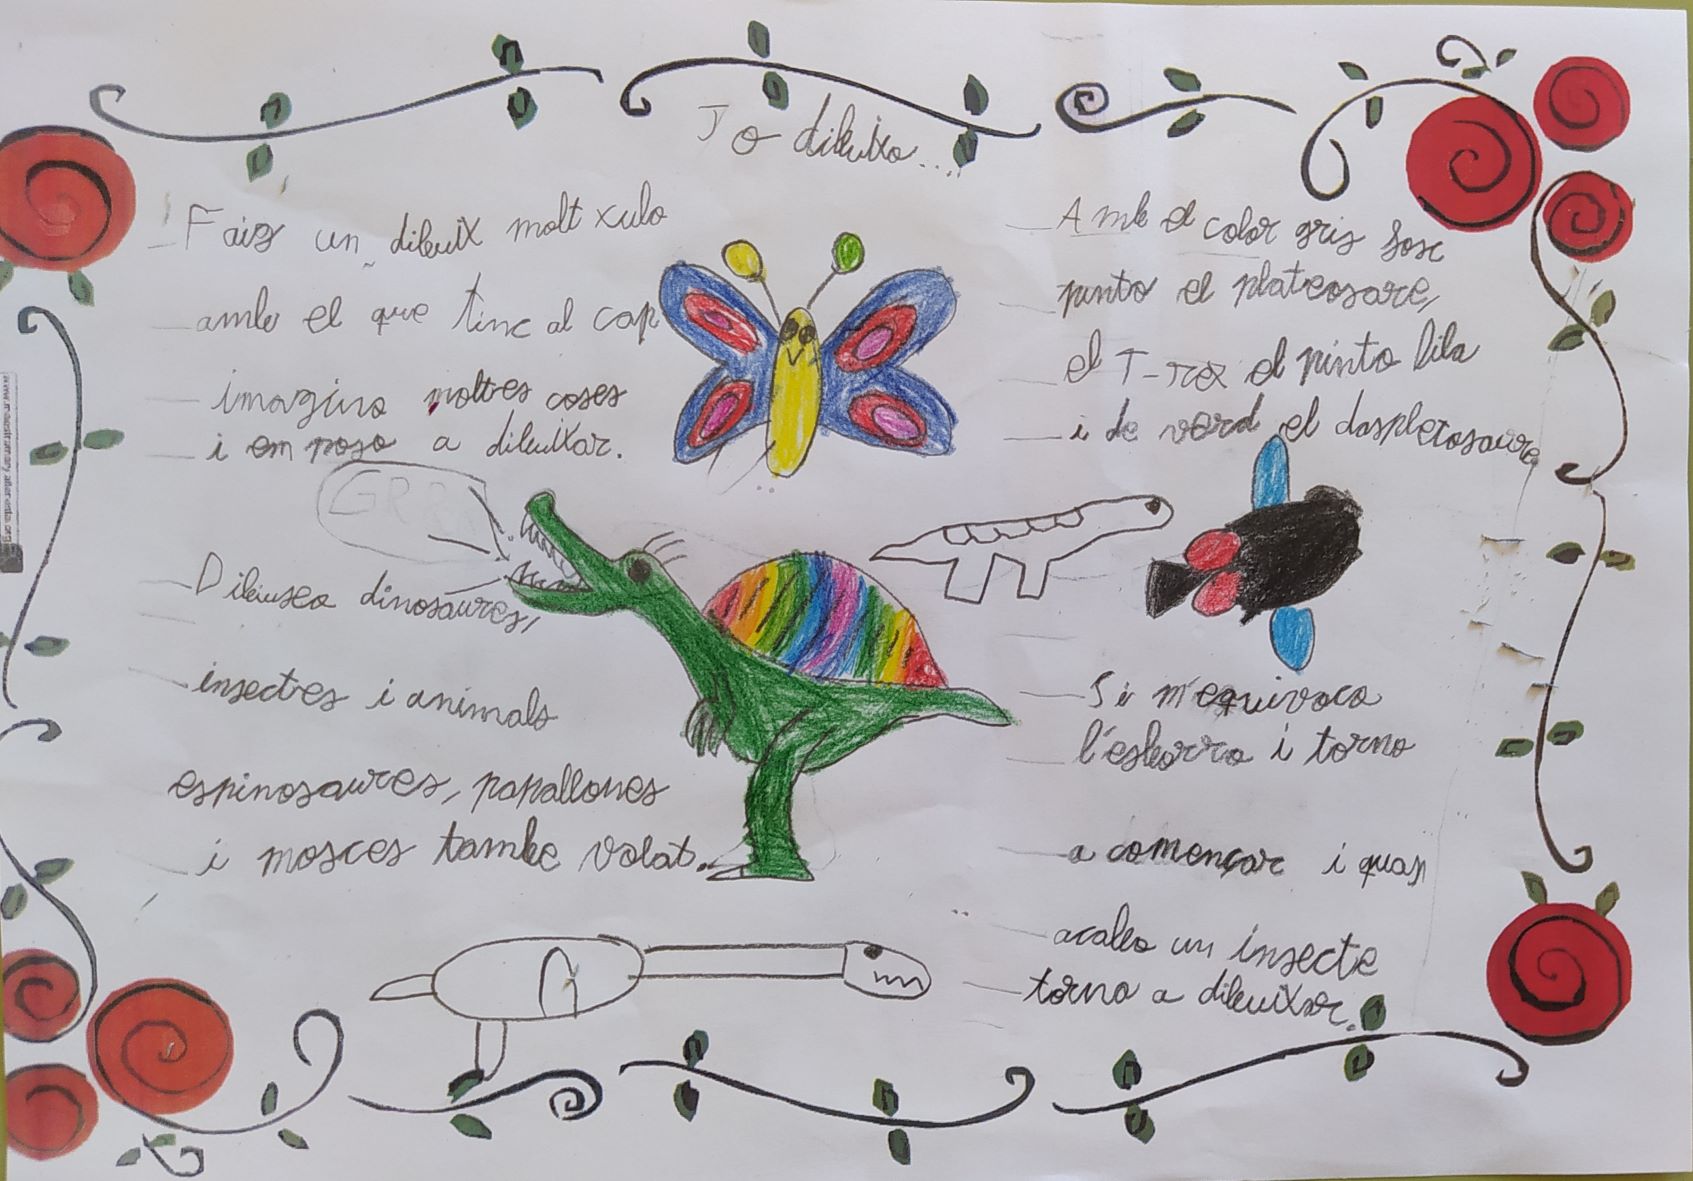 Jo dibuixo...
Faig un dibuix molt xulo
amb el que tinc al cap
imagino moltes coses
i em poso a dibuixar.
GRRR
Dibuixo dinosaures,
insectes i animals
espinosaures, papallones
i mosces tambe volat.
Amb el color gris fosc
pinto el plateosare,
el T-rex el pinto lila
i de verd el daspletosaure
Si m'equivoco
l'esborro i torno
a començar i quan
acabo un insecte
torno a dibuixar.